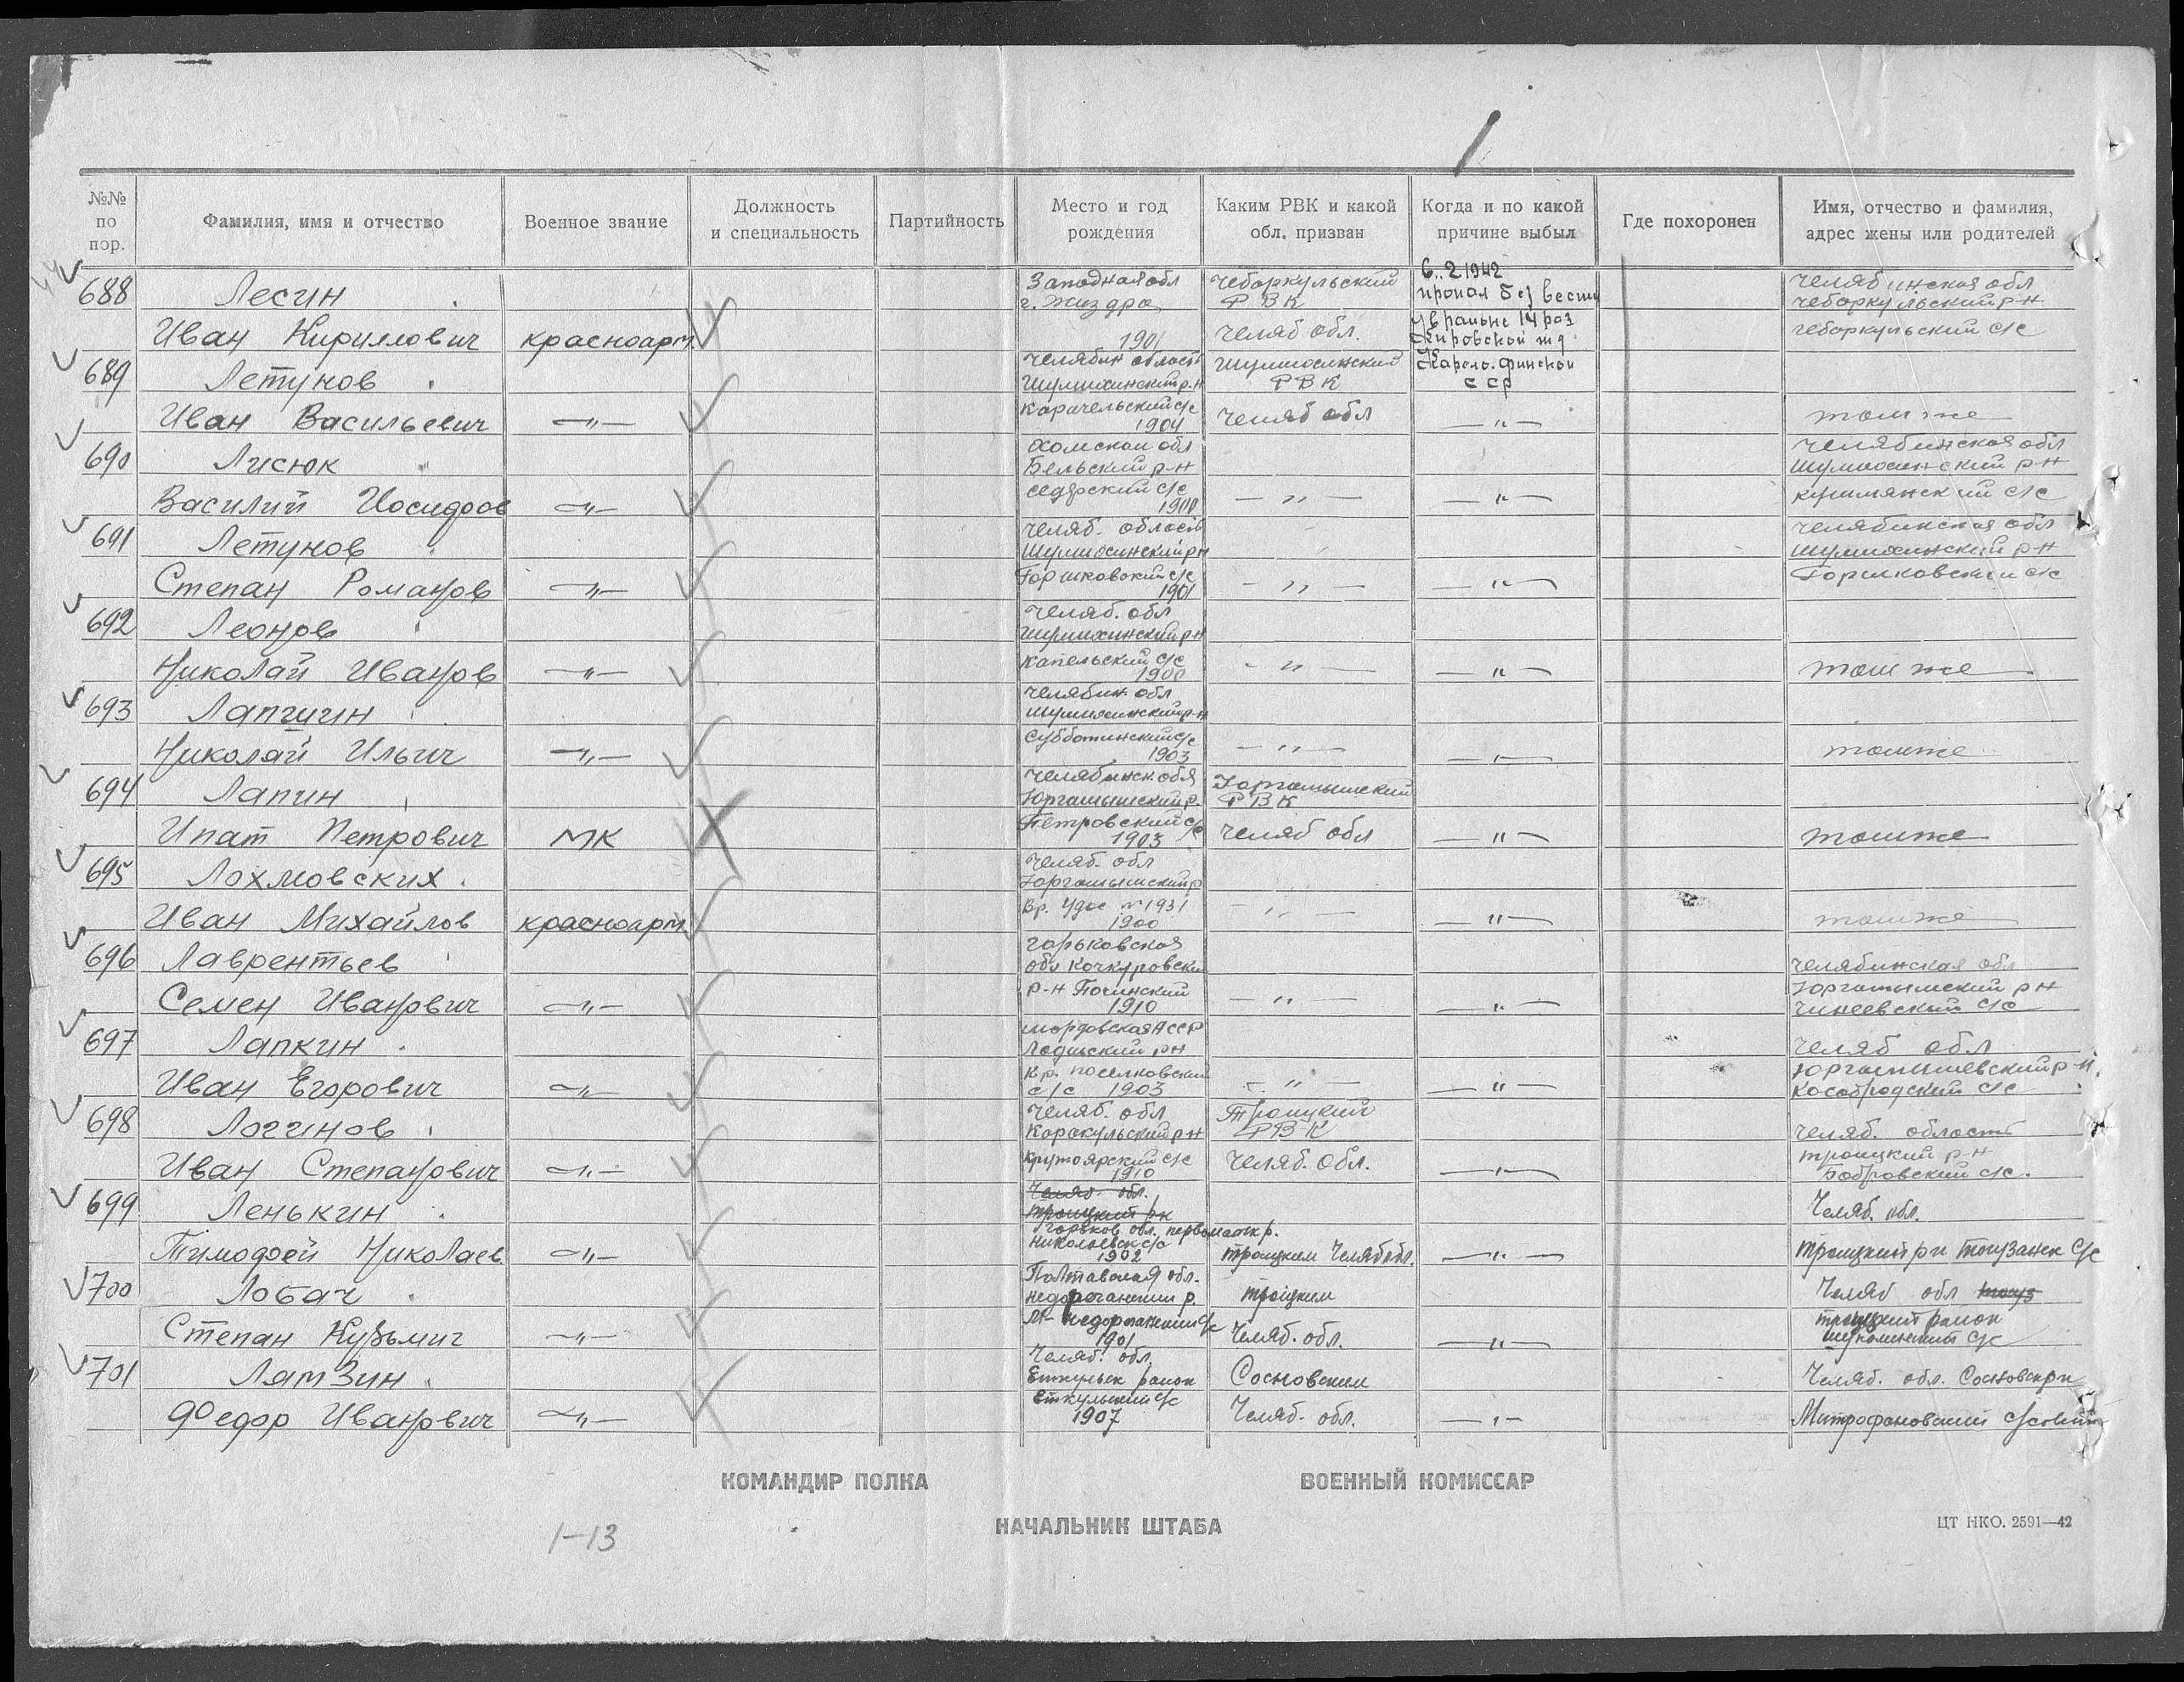 №№ по пор.
Фамилия, имя и отчество
Военное звание
Должность и специальность
Партийность
Место и год рождения
Каким РВК и какой обл. призван
Когда и по какой причине выбыл
Где похоронен
Имя, отчество и фамилия, адрес жены или родителей
688 Лесин Западная обл Чебаркульский 6.2 1942 Челябинская обл
г. Жиздра РВК пропал без вести чебаркульский р-н
Иван Кириллович красноарм. 1901 Челяб обл. в районе 14 раз чебаркульский с/с
Кировской жд
689 Летунов Челябин область Шумихинский Карело-финской
Шумихинский р-н РВК ССР
Иван Васильевич —„— Карачельский с/с 1904 Челяб обл —„— там же
690 Лисюк Холмской обл Челябинская обл
Бельский р-н Шумихинский р-н
Василий Иосидров —„— с/с 1900 —„— —„— с/с
691 Летунов Челяб. область Челябинская обл
Шумихинский рн Шумихинский р-н
Степан Романов —„— Горшковский с/с 1901 —„— —„— Горшковский с/с
692 Леонов Челяб. обл
Шумихинский рн
Николай Иванов —„— Капельский с/с 1900 —„— —„— там же
693 Лапшин Челябин. обл
Шумихинский р-н
Николай Ильич —„— Субботинский с/с 1903 —„— —„— там же
694 Лапин Челябинск. обл Юргамышский
Юргамышский р. РВК
Ипат Петрович МК Петровский с/с 1903 Челяб обл —„— там же
695 Лохмовских Челяб. обл
Юргамышский р
Иван Михайлов красноарм. Вр. Удос № 1931 1900 —„— —„— там же
696 Лаврентьев Горьковская
обл Кочкуровский Челябинская обл
Семен Иванович —„— р-н Починский 1910 —„— —„— Юргамышский р н
Чинеевский с/с
697 Лапкин Мордовская АССР
Ладский рн Челяб обл
Иван Егорович —„— Кр. поселковский с/с 1903 —„— —„— Юргамышевский р-н.
Кособродский с/с
698 Логинов Челяб. обл Троицкий
Каракульский р н РВК Челяб. область
Иван Степанович —„— Крутоярский с/с 1910 Челяб. обл. —„— Троицкий р-н
Бобровский с/с.
699 Ленькин Челяб. обл. Челяб. обл.
Троицкий рн
Горьков обл. первомайск р.
Тимофей Николаев —„— Николаевск с/с 1902 Троицким Челяб обл. —„— Троицкий р-н Тогузакск с/с
700 Лобач Полтавская обл. Троицким Челяб обл
р.
Степан Кузьмич —„— с/с 1901 Челяб. обл. —„— Троицкий район
с/с
701 Лямзин Челяб. обл.
Еткульск район Сосновским Челяб. обл. Сосновск рн
Федор Иванович —„— Еткульский с/с 1907 Челяб. обл. —„— Митрофановский с/совет
КОМАНДИР ПОЛКА
ВОЕННЫЙ КОМИССАР
НАЧАЛЬНИК ШТАБА
ЦТ НКО. 2591—42
1-13